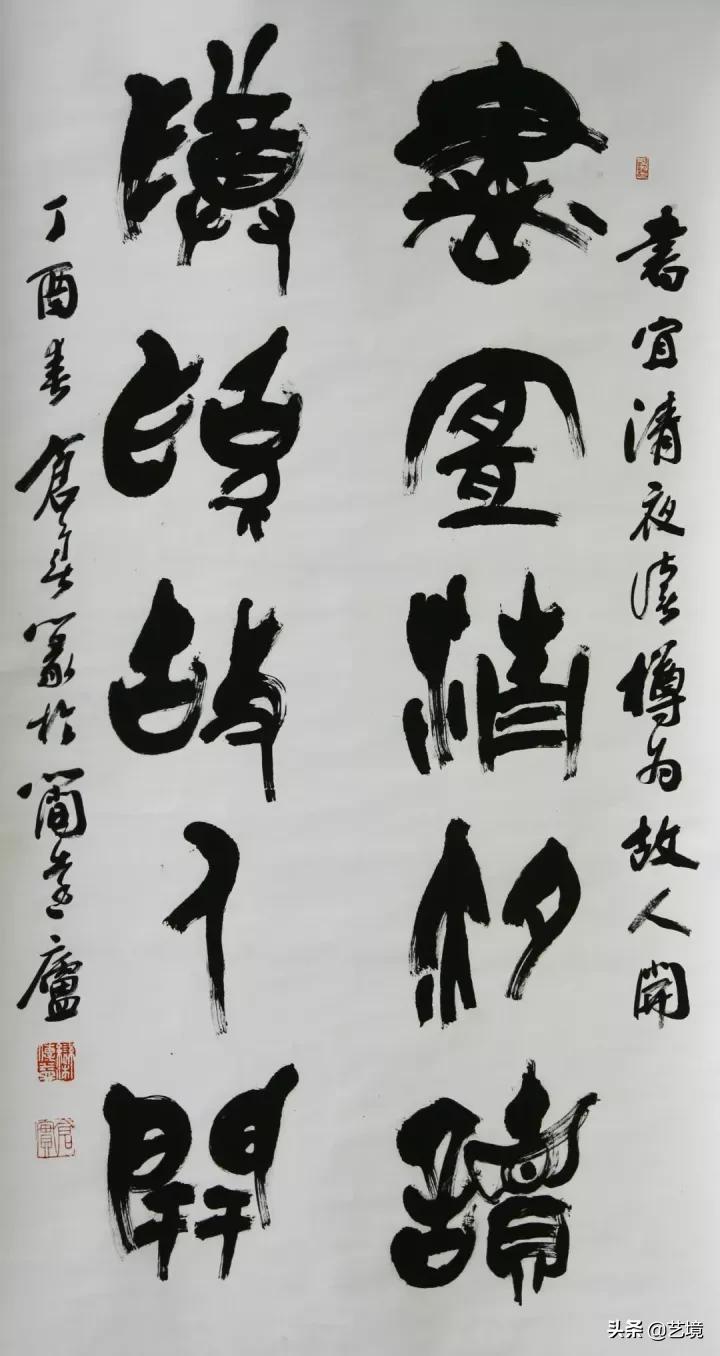 書宜清夜读樽为故人開
書宜清夜讀
樽為故人開
丁酉春篆於廬
头条 @艺境